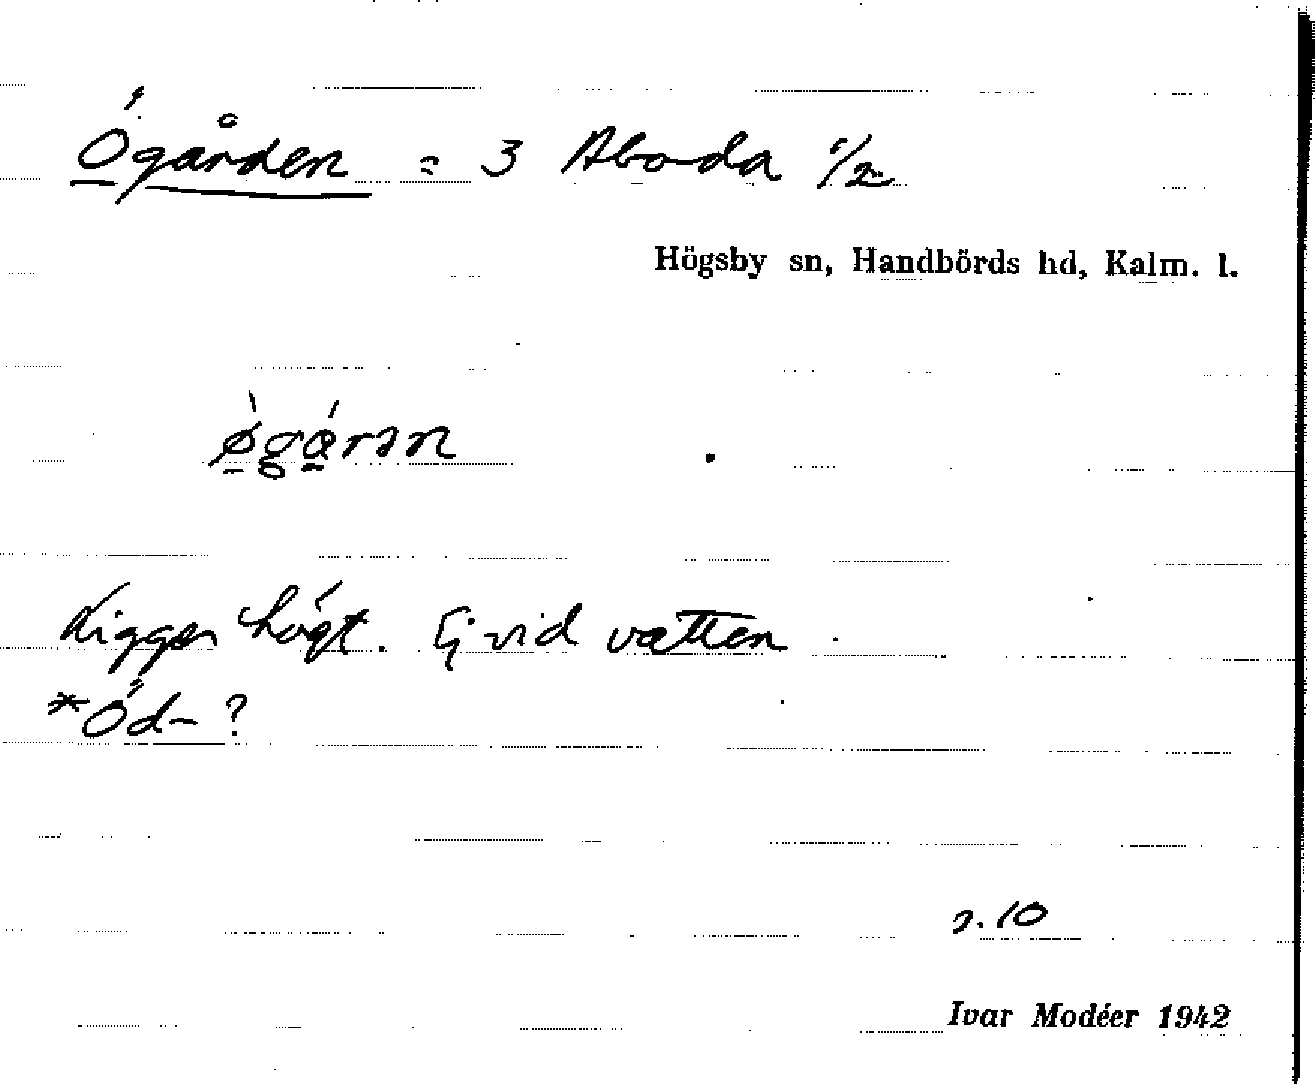 Ögården = 3 Aboda 1/2
Högsby sn, Handbörds hd, Kalm. l.
Ligger högt. Ej vid vatten.
*Öd- ?
s. 10
Ivar Modéer 1942